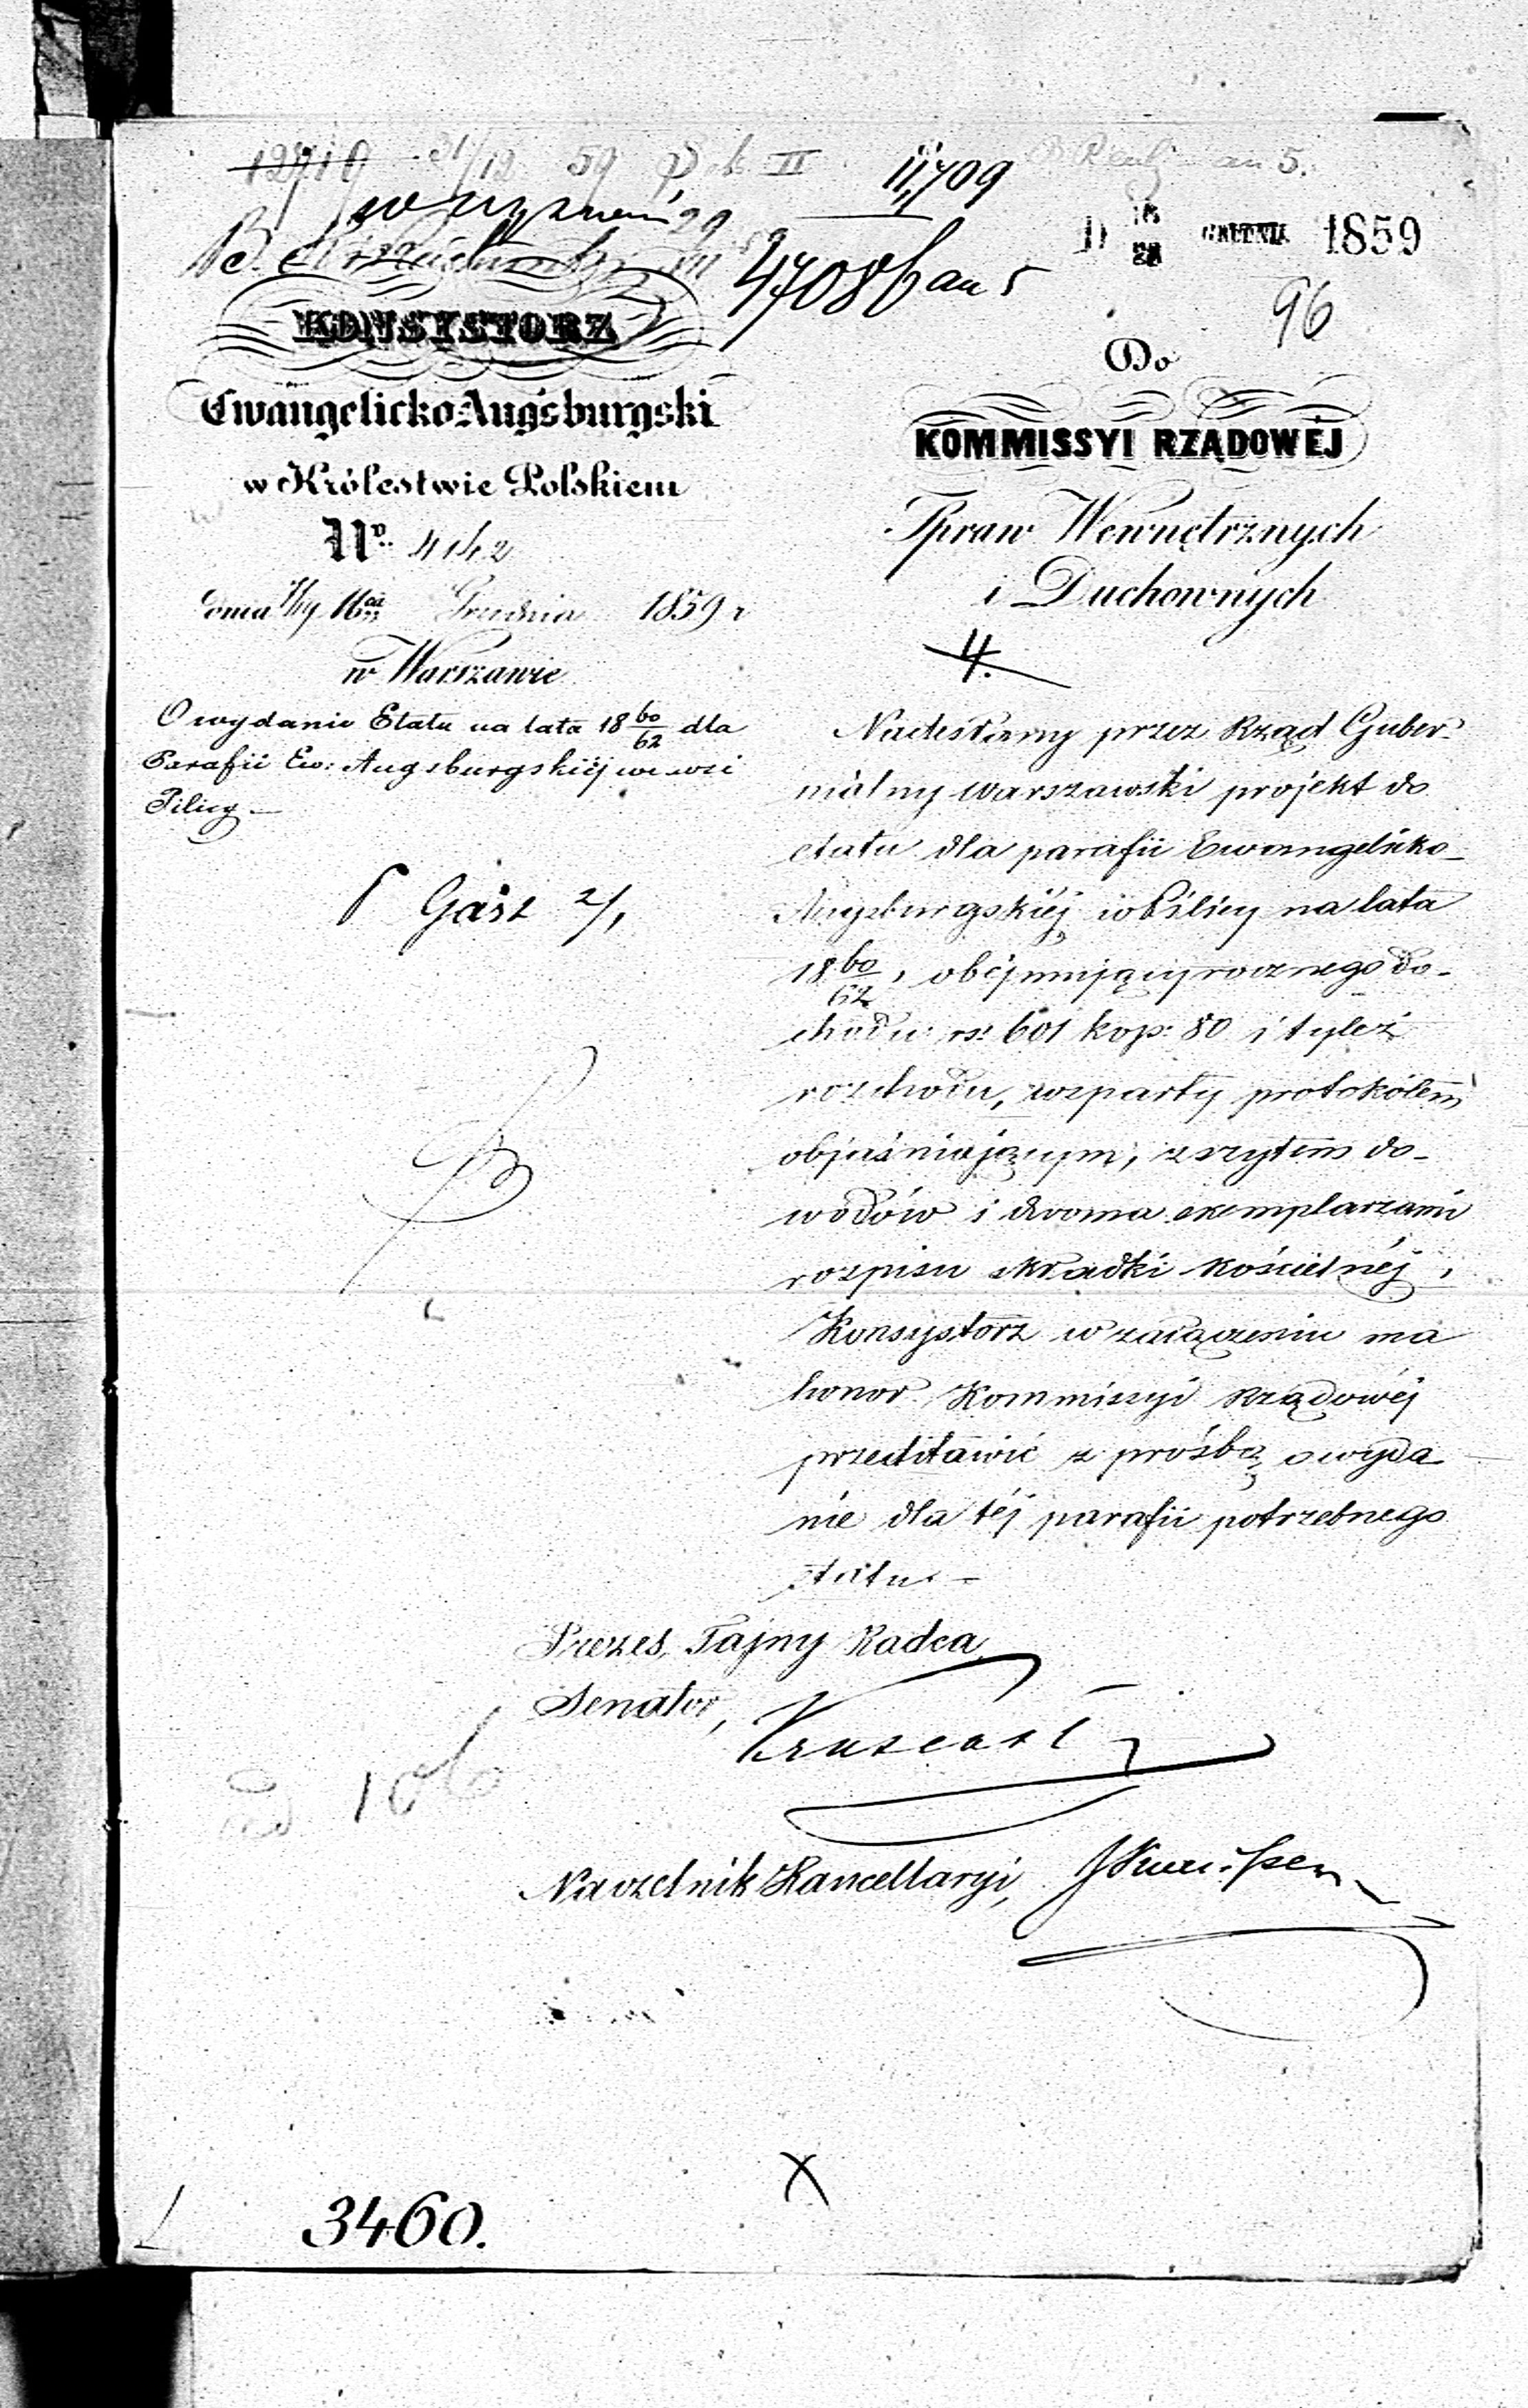 12719 31/12 59 II
11,709
an 5.
29
47086 an 5
GRUDNIA 1859
96
KONSYSTORZ
Ewangelicko-Augsburgski
w Królestwie Polskiem
No.
dnia Grudnia 1859 r
w Warszawie
O wydanie Etatu na lata 18 60/62 dla
Parafii Ew: Augsburgskiéj we wsi
Pilicy.—
Gasz 2/1
Do
KOMMISSYI RZĄDOWÉJ
Spraw Wewnętrznych
i Duchownych
4.
Nadesłany przez Rząd Guber-
nialny Warszawski projekt do
etatu dla parafii Ewangelicko-
Augsburgskiéj w Pilicy na lata
18 60/62, obejmujący rocznego do-
chodu rs: 601 kop: 80 i tyleż
rozchodu, wsparty protokółem
objaśniającym, zszytem do-
wodów i dwoma exemplarzami
rozpisu składki kościelnéj,
Konsystorz w załączeniu ma
honor Kommissyi Rządowéj
przedstawić z prośbą o wyda
nie dla téj parafii potrzebnego
etatu.—
Prezes, Tajny Radca,
Senator,
Naczelnik Kancellaryi,
3460.